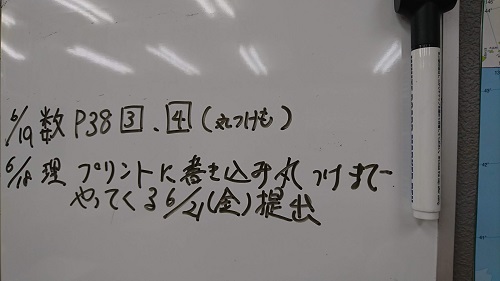 6/19 数 P38 3 . 4 (丸つけも)
6/18 理 プリントに書き込み丸つけまで
やってくる 6/21(金)提出